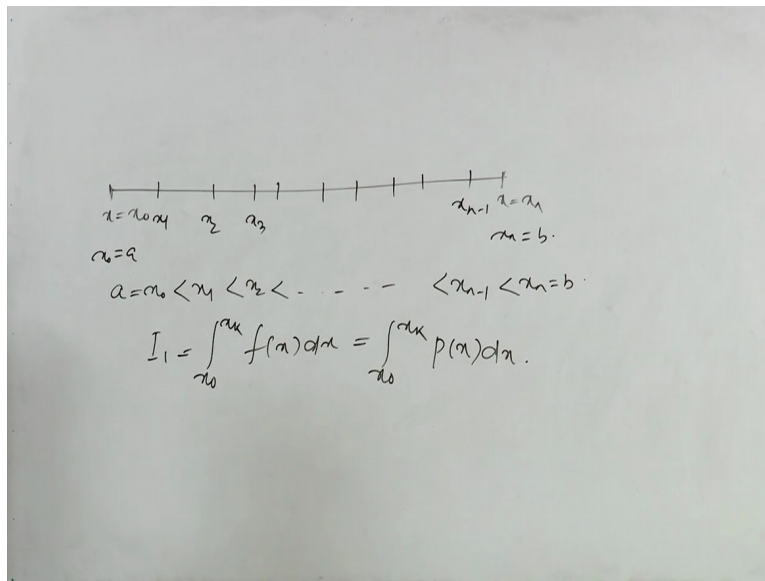 x=x₀ x₁ x₂ x₃ xₙ₋₁ x=xₙ
xₙ=b.
x₀=a
a=x₀<x₁<x₂<.---- <xₙ₋₁<xₙ=b.
I₁=∫_{x₀}^{x_K} f(x)dx=∫_{x₀}^{x_K} p(x)dx.